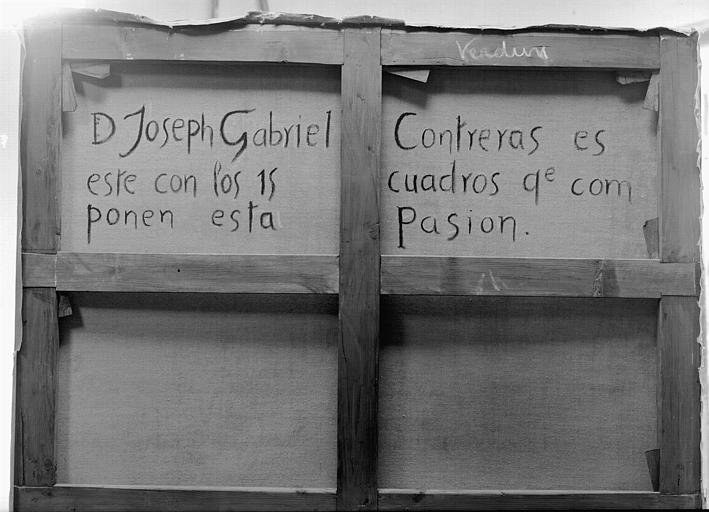 Verdun
D Joseph Gabriel Contreras es
este con los 15 cuadros qe com
ponen esta Pasion.